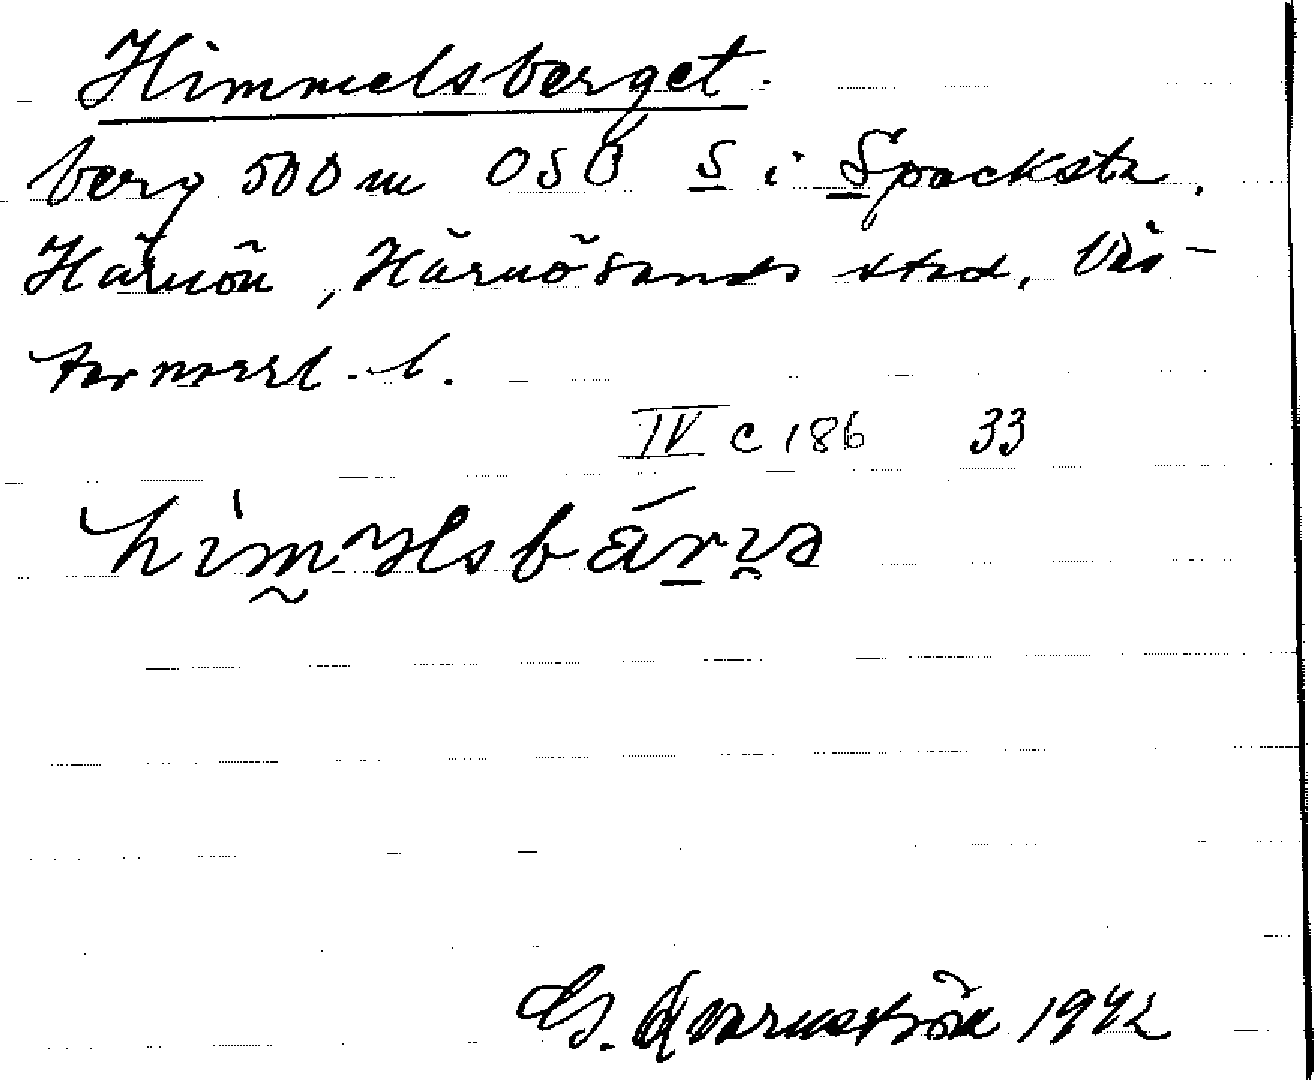 Himmelsberget.
berg 500 m OSO S i Spacksta.
Härnön, Härnösands stad, Väs-
ternorrl. l.
IV c 186 33
G. Kvarnström 1942